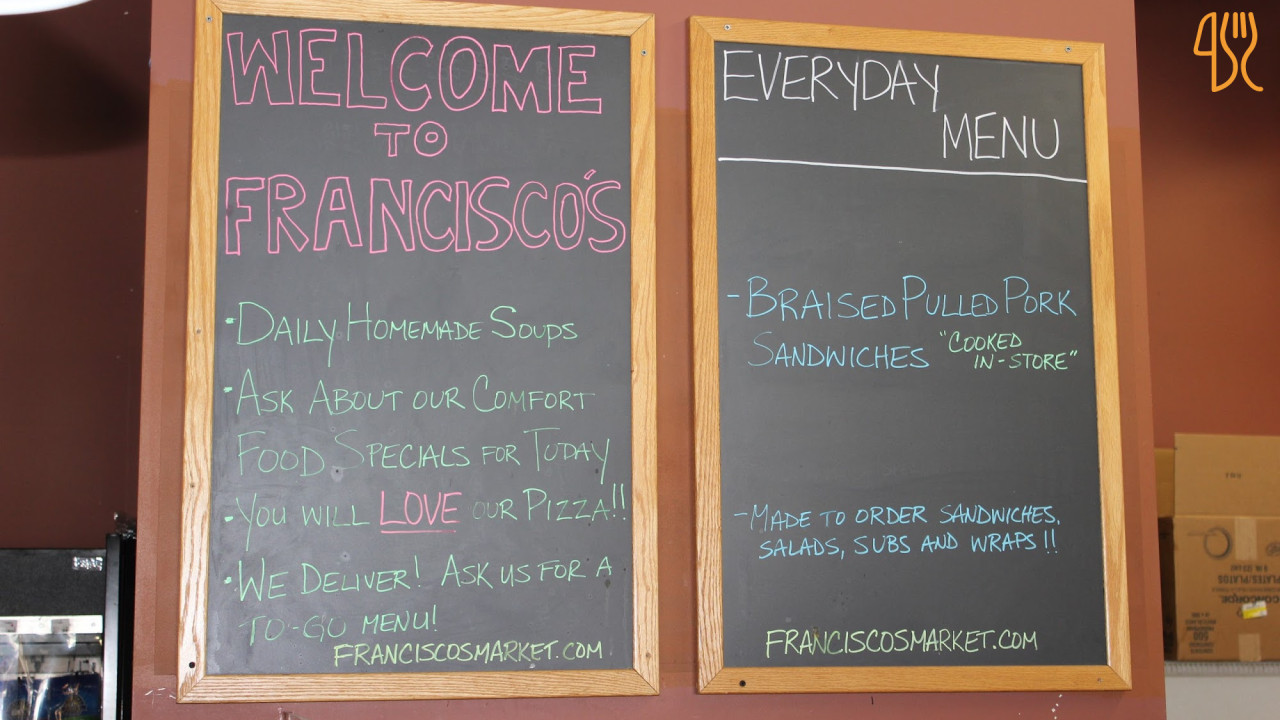 WELCOME
TO
FRANCISCO'S
·DAILY HOMEMADE SOUPS
·ASK ABOUT OUR COMFORT
FOOD SPECIALS FOR TODAY
·YOU WILL LOVE OUR PIZZA!!
·WE DELIVER! ASK US FOR A
TO-GO MENU!
FRANCISCOSMARKET.COM
EVERYDAY
MENU
-BRAISED PULLED PORK
SANDWICHES "COOKED
IN-STORE"
-MADE TO ORDER SANDWICHES,
SALADS, SUBS AND WRAPS!!
FRANCISCOSMARKET.COM
PLATES/PLATOS
CONCORDE
500